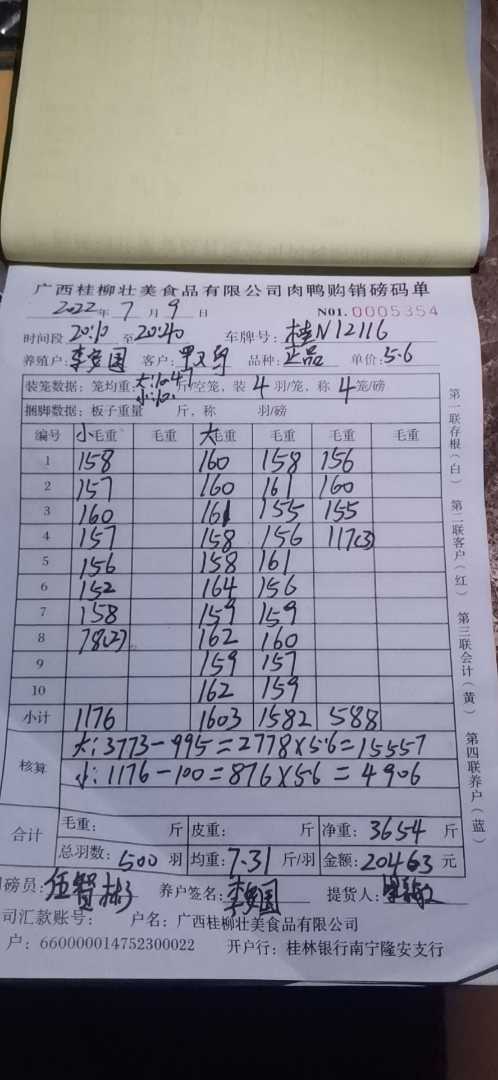 广西桂柳壮美食品有限公司肉鸭购销磅码单
2022年 7 月 9 日 NO1. 0005354
时间段 20:10 至 20:40 车牌号: 桂N12116
养殖户: 李 国 客户: 品种: 正品 单价: 5.6
装笼数据: 笼均重: 大: 10.47 小:10. 斤/空笼, 装 4 羽/笼, 称 4 笼/磅
捆脚数据: 板子重量 斤, 称 羽/磅
编号 小毛重 毛重 大毛重 毛重 毛重 毛重
1 158 160 158 156
2 157 160 161 160
3 160 161 155 155
4 157 158 156 117(3)
5 156 158 161
6 152 164 156
7 158 159 159
8 78(2) 162 160
9 159 157
10 162 159
小计 1176 1603 1582 588
核算 大: 3773-995=2778×5.6=15557
小: 1176-100=876×5.6=4906
合计 毛重: 斤 皮重: 斤 净重: 3654 斤
总羽数: 500 羽 均重: 7.31 斤/羽 金额: 20463 元
磅员: 伍智彬 养户签名: 李 国 提货人:
司汇款账号: 户名: 广西桂柳壮美食品有限公司
户: 660000014752300022 开户行: 桂林银行南宁隆安支行
第一联存根(白)
第二联客户(红)
第三联会计(黄)
第四联养户(蓝)